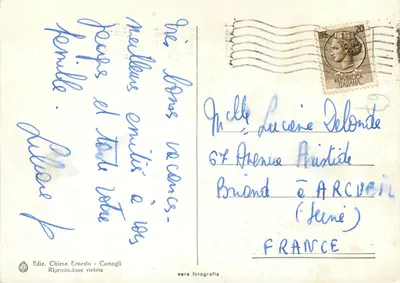 très bonnes vacances -
meilleures amitiés à vos
et toute votre
famille.
Liliane
Mlle Luciene Delonde
67 Avenue Aristide
Briand à ARCUEIL
(Seine)
FRANCE
Ediz. Chiesa Ernesto - Camogli
Riproduzione vietata
vera fotografia